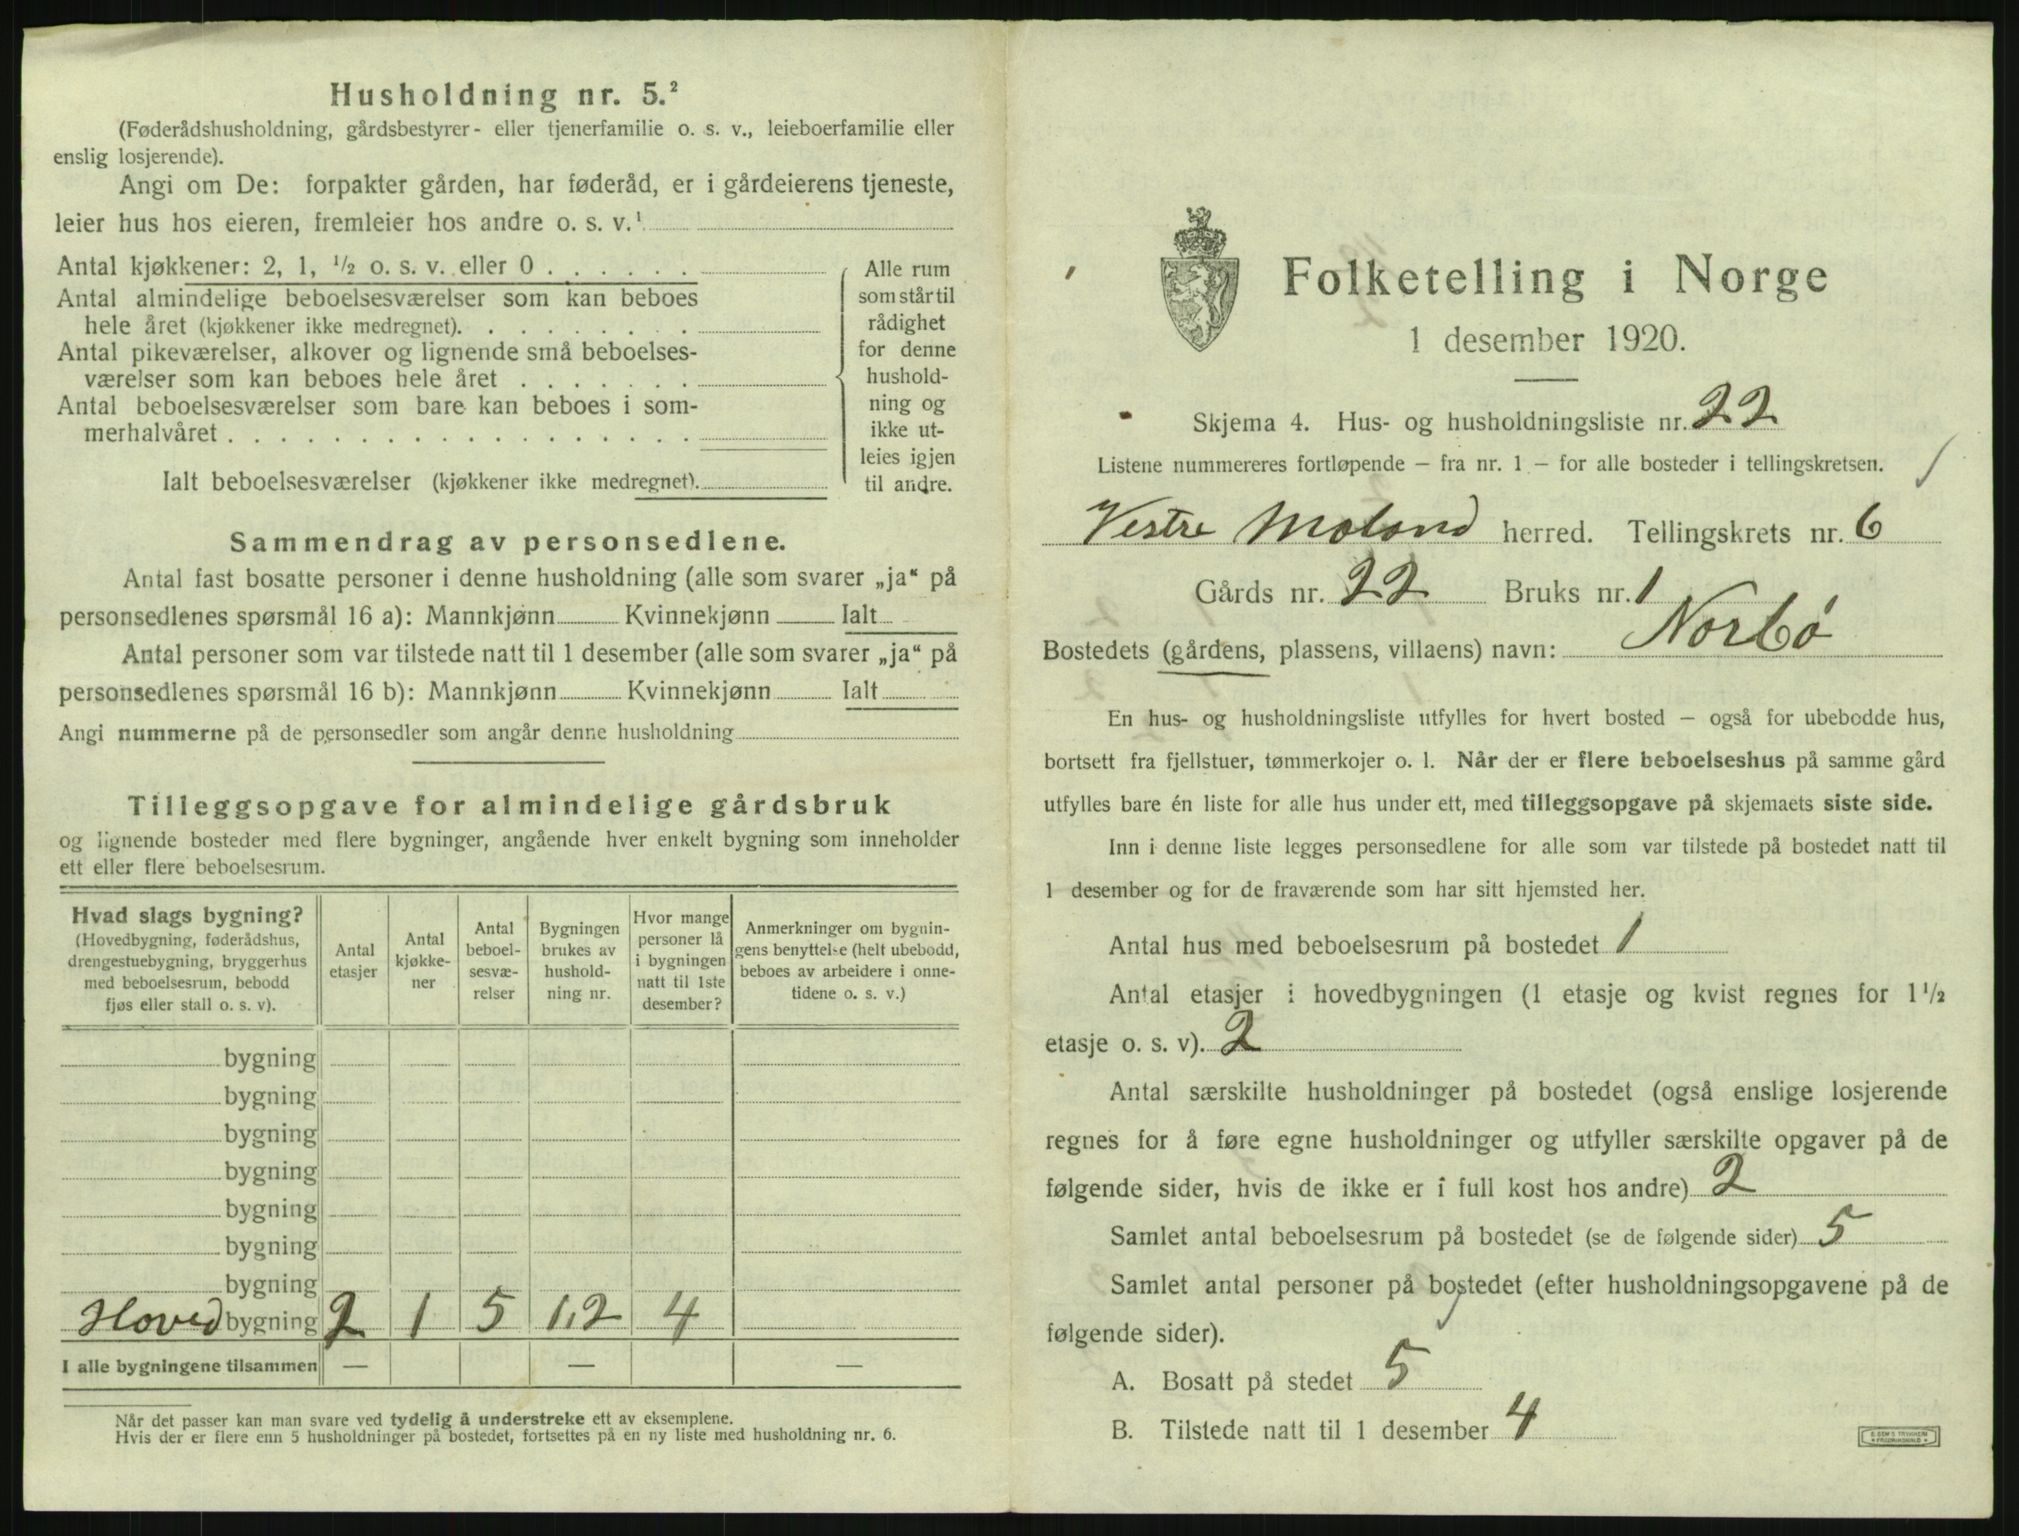 Husholdning nr. 5.²
(Føderådshusholdning, gårdsbestyrer- eller tjenerfamilie o. s. v., leieboerfamilie eller
enslig losjerende).
Angi om De: forpakter gården, har føderåd, er i gårdeierens tjeneste,
leier hus hos eieren, fremleier hos andre o. s. v.¹
Antal kjøkkener: 2, 1, ½ o. s. v. eller 0 . . . . . .
Antal almindelige beboelsesværelser som kan beboes
hele året (kjøkkener ikke medregnet). . . . . . . . .
Antal pikeværelser, alkover og lignende små beboelses-
værelser som kan beboes hele året . . . . . . .
Antal beboelsesværelser som bare kan beboes i som-
merhalvåret . . . . . . . . . . . . . . . . . .
Ialt beboelsesværelser (kjøkkener ikke medregnet).
Alle rum
som står til
rådighet
for denne
hushold-
ning og
ikke ut-
leies igjen
til andre.
Sammendrag av personsedlene.
Antal fast bosatte personer i denne husholdning (alle som svarer „ja“ på
personsedlenes spørsmål 16 a): Mannkjønn Kvinnekjønn Ialt
Antal personer som var tilstede natt til 1 desember (alle som svarer „ja“ på
personsedlenes spørsmål 16 b): Mannkjønn Kvinnekjønn Ialt
Angi nummerne på de personsedler som angår denne husholdning
Tilleggsopgave for almindelige gårdsbruk
og lignende bosteder med flere bygninger, angående hver enkelt bygning som inneholder
ett eller flere beboelsesrum.
Hvad slags bygning?
(Hovedbygning, føderådshus,
drengestuebygning, bryggerhus
med beboelsesrum, bebodd
fjøs eller stall o. s. v).
Antal
etasjer
Antal
kjøkke-
ner
Antal
beboel-
sesvæ-
relser
Bygningen
brukes av
hushold-
ning nr.
Hvor mange
personer lå
i bygningen
natt til 1ste
desember?
Anmerkninger om bygnin-
gens benyttelse (helt ubebodd,
beboes av arbeidere i onne-
tidene o. s. v.)
bygning
bygning
bygning
bygning
bygning
bygning
bygning
Hoved bygning 2 1 5 1,2 4
I alle bygningene tilsammen — — —
Når det passer kan man svare ved tydelig å understreke ett av eksemplene.
Hvis der er flere enn 5 husholdninger på bostedet, fortsettes på en ny liste med husholdning nr. 6.
Folketelling i Norge
1 desember 1920.
Skjema 4. Hus- og husholdningsliste nr. 22
Listene nummereres fortløpende — fra nr. 1 — for alle bosteder i tellingskretsen.
Vestre Moland herred. Tellingskrets nr. 6
Gårds nr. 22 Bruks nr. 1
Bostedets (gårdens, plassens, villaens) navn: Norbø
En hus- og husholdningsliste utfylles for hvert bosted — også for ubebodde hus,
bortsett fra fjellstuer, tømmerkojer o. l. Når der er flere beboelseshus på samme gård
utfylles bare én liste for alle hus under ett, med tilleggsopgave på skjemaets siste side.
Inn i denne liste legges personsedlene for alle som var tilstede på bostedet natt til
1 desember og for de fraværende som har sitt hjemsted her.
Antal hus med beboelsesrum på bostedet 1
Antal etasjer i hovedbygningen (1 etasje og kvist regnes for 1½
etasje o. s. v). 2
Antal særskilte husholdninger på bostedet (også enslige losjerende
regnes for å føre egne husholdninger og utfyller særskilte opgaver på de
følgende sider, hvis de ikke er i full kost hos andre) 2
Samlet antal beboelsesrum på bostedet (se de følgende sider) 5
Samlet antal personer på bostedet (efter husholdningsopgavene på de
følgende sider).
A. Bosatt på stedet 5
B. Tilstede natt til 1 desember 4